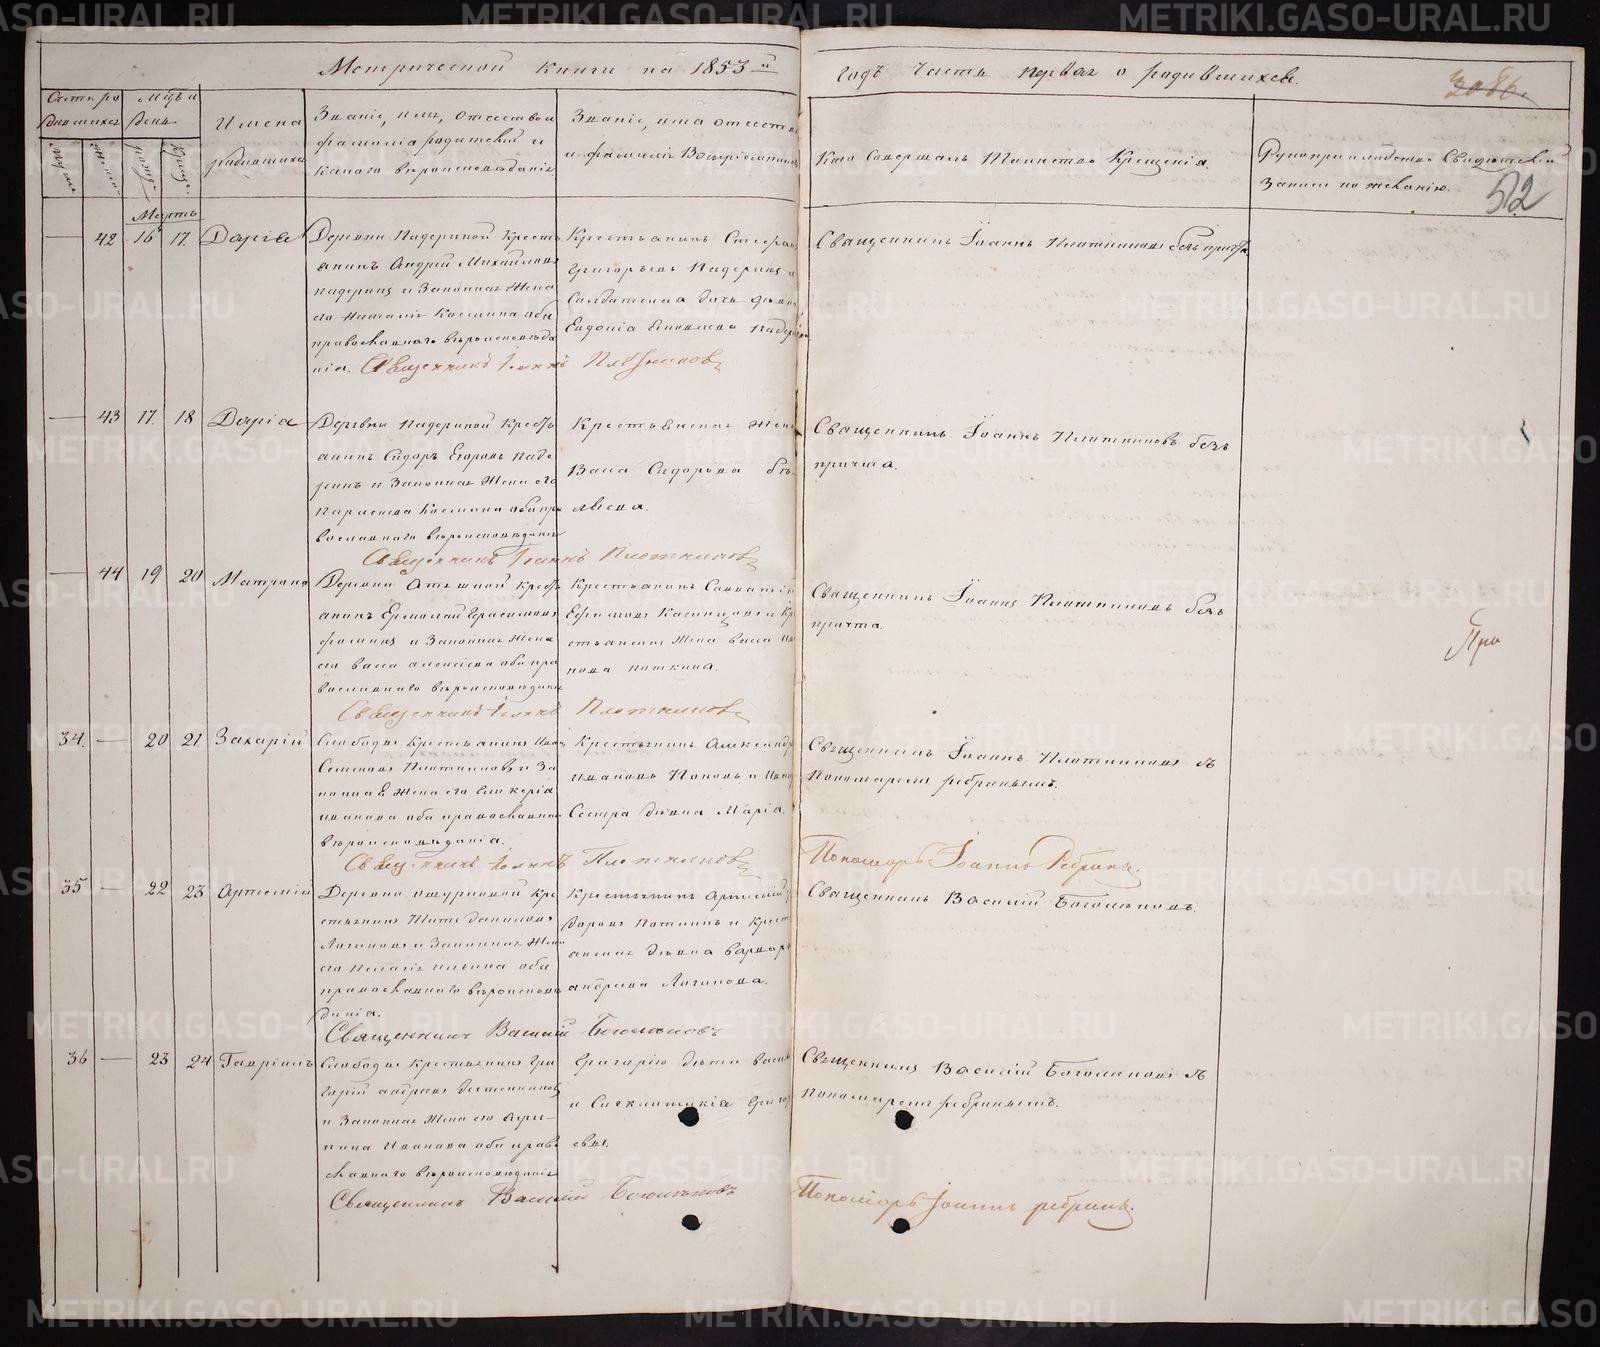 METRIKI.GASO-URAL.RU
Метрической книги на 1853й годъ часть первая о родившихся.
3086.
512
Счетъ родившихся
Мѣсяцъ и день
Имена родившихся
Званіе, имя, отчество и фамилія родителей и какого вѣроисповѣданія
Званіе, имя отчество и фамилія Воспріемниковъ
Кто совершалъ Таинство Крещенія.
Рукоприкладство Свидѣтелей записи по желанію.
Мартъ
— 42 16 17 Дарія
Деревни Падериной Кресть
янинъ Андрей Михайловъ
Падеринъ и Законная Жена
его Наталія Космина оба
православнаго вѣроисповѣда
нія. Священникъ Іоаннъ Плотниковъ
Крестьянинъ Стефанъ
Григорьевъ Падеринъ и
Солдатская дочь дѣвка
Евдокія
Священникъ Іоаннъ Плотниковъ безъ причта
— 43 17 18 Дарія
Деревни Падериной Кресть
янинъ Сидоръ Егоровъ Паде
ринъ и Законная Жена его
Параскева Космина оба пра
вославнаго вѣроисповѣданія
Священникъ Іоаннъ Плотниковъ
Крестьянская Жена
Васса Сидорова
Священникъ Іоаннъ Плотниковъ безъ
причта.
— 44 19 20 Матрона
Деревни Кресть
янинъ Ермолай Герасимовъ
Фоминъ и Законная Жена
его Васса Алексіева оба пра
вославнаго вѣроисповѣданія
Священникъ Іоаннъ Плотниковъ
Крестьянинъ Савватій
Ефимовъ и Кре
стьянская Жена Васса Ива
нова Паткина.
Священникъ Іоаннъ Плотниковъ безъ
причта.
При
34. — 20 21 Захарій
Слободы Крестьянинъ Иванъ
Семеновъ Плотниковъ и За
конная Жена его Гликерія
Иванова оба православнаго
вѣроисповѣданія.
Священникъ Іоаннъ Плотниковъ
Крестьянинъ Александръ
Ивановъ Поповъ и
Сестра дѣвка Марія.
Священникъ Іоаннъ Плотниковъ съ
Пономаремъ Ребринымъ.
Пономарь Іоаннъ Ребринъ.
35 — 22 23 Артемій
Деревни Кре
стьянинъ Титъ Даниловъ
Логиновъ и Законная Жена
его Пелагія Ильина оба
православнаго вѣроисповѣ
данія.
Священникъ Василій Боголѣповъ
Крестьянинъ Артемій
Паткинъ и Крест
янская дѣвка Варвара
Андреева Логинова.
Священникъ Василій Боголѣповъ.
36 — 23 24 Гавріилъ
Слободы Крестьянинъ Гри
горій Андреевъ
и Законная Жена его Агри
пина Иванова оба право
славнаго вѣроисповѣданія
Священникъ Василій Боголѣповъ
Григорію дѣти Василій
и Синклитикія Григорь
евы.
Священникъ Василій Боголѣповъ съ
Пономаремъ Ребринымъ.
Пономарь Іоаннъ Ребринъ.